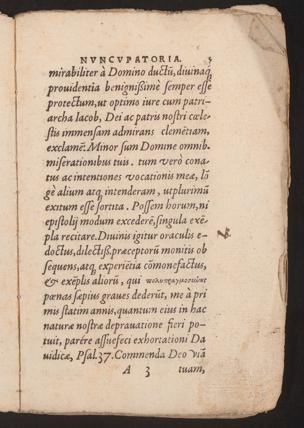 NVNCVPATORIA. 5
mirabiliter à Domino ductũ, diuinaq́
prouidentia benignißimè semper esse
protectum, ut optimo iure cum patri-
archa Iacob, Dei ac patris nostri cœle-
stis immensam admirans clemẽtiam,
exclamẽ. Minor sum Domine omnib.
miserationibus tuis. tum verò cona-
tus ac intentiones vocationis meæ, lõ
gè alium atq́ intenderam, utplurimũ
exitum esse sortita. Possem horum, ni
epistolij modum excederẽ, singula exẽ-
pla recitare. Diuinis igitur oraculis e-
doctus, dilectiß. præceptorũ monitis ob
sequens, atq́ experiẽtia cõmonefactus,
& exẽplis aliorũ, qui πολυπραγμοσύνης
pœnas sæpius graues dederũt, me à pri
mis statim annis, quantum eius in hac
naturæ nostræ deprauatione fieri po-
tuit, parére assuefeci exhortationi Da
uidicæ, Psal. 37. Commenda Deo viã
A 3 tuam,